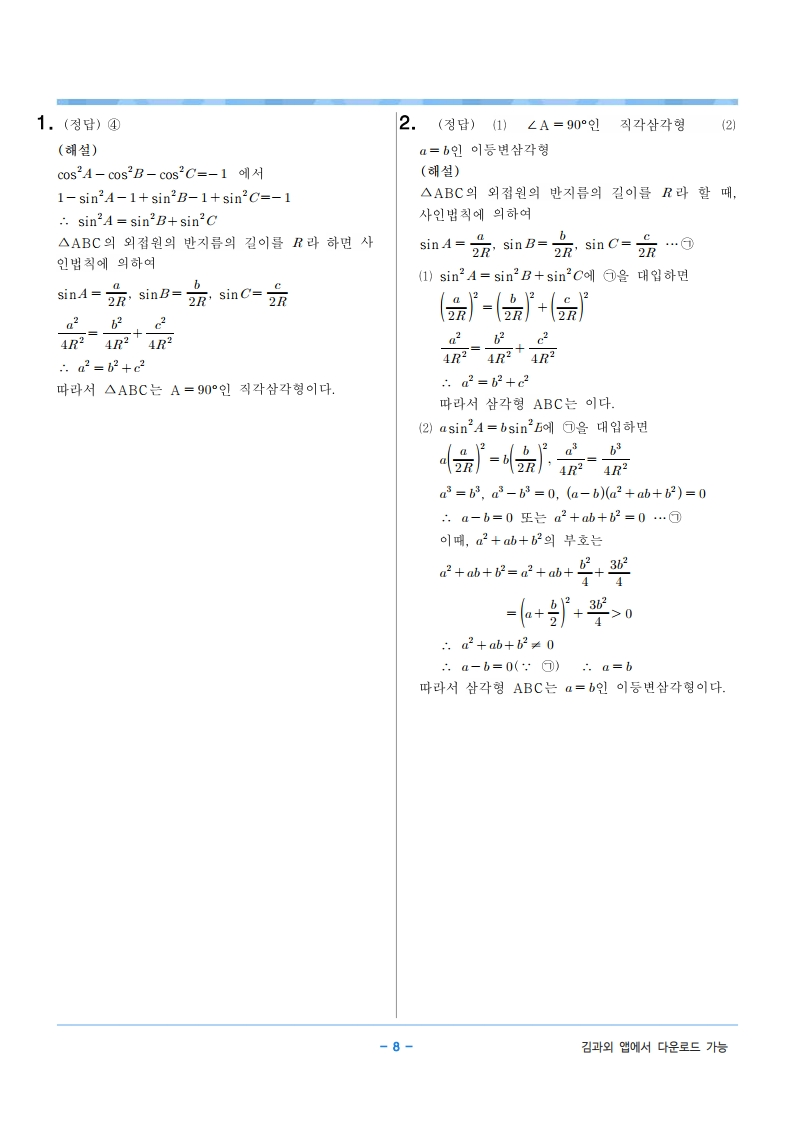 1. (정답) ④
(해설)
cos²A − cos²B − cos²C=−1 에서
1−sin²A−1+sin²B−1+sin²C=−1
∴ sin²A = sin²B+sin²C
△ABC의 외접원의 반지름의 길이를 R라 하면 사
인법칙에 의하여
sinA = a/2R, sinB= b/2R, sinC= c/2R
a²/4R² = b²/4R² + c²/4R²
∴ a² = b² + c²
따라서 △ABC는 A = 90°인 직각삼각형이다.
2. (정답) ⑴ ∠A = 90°인 직각삼각형 ⑵
a = b인 이등변삼각형
(해설)
△ABC의 외접원의 반지름의 길이를 R라 할 때,
사인법칙에 의하여
sin A = a/2R, sin B= b/2R, sin C = c/2R ⋯㉠
⑴ sin²A = sin²B + sin²C에 ㉠을 대입하면
(a/2R)² = (b/2R)² + (c/2R)²
a²/4R² = b²/4R² + c²/4R²
∴ a² = b² + c²
따라서 삼각형 ABC는 이다.
⑵ a sin²A = b sin²B에 ㉠을 대입하면
a(a/2R)² = b(b/2R)², a³/4R² = b³/4R²
a³ = b³, a³ − b³ = 0, (a−b)(a² + ab + b²) = 0
∴ a − b = 0 또는 a² + ab + b² = 0 ⋯㉠
이때, a² + ab + b²의 부호는
a² + ab + b² = a² + ab + b²/4 + 3b²/4
= (a + b/2)² + 3b²/4 > 0
∴ a² + ab + b² ≠ 0
∴ a − b = 0(∵ ㉠) ∴ a = b
따라서 삼각형 ABC는 a = b인 이등변삼각형이다.
− 8 −
김과외 앱에서 다운로드 가능